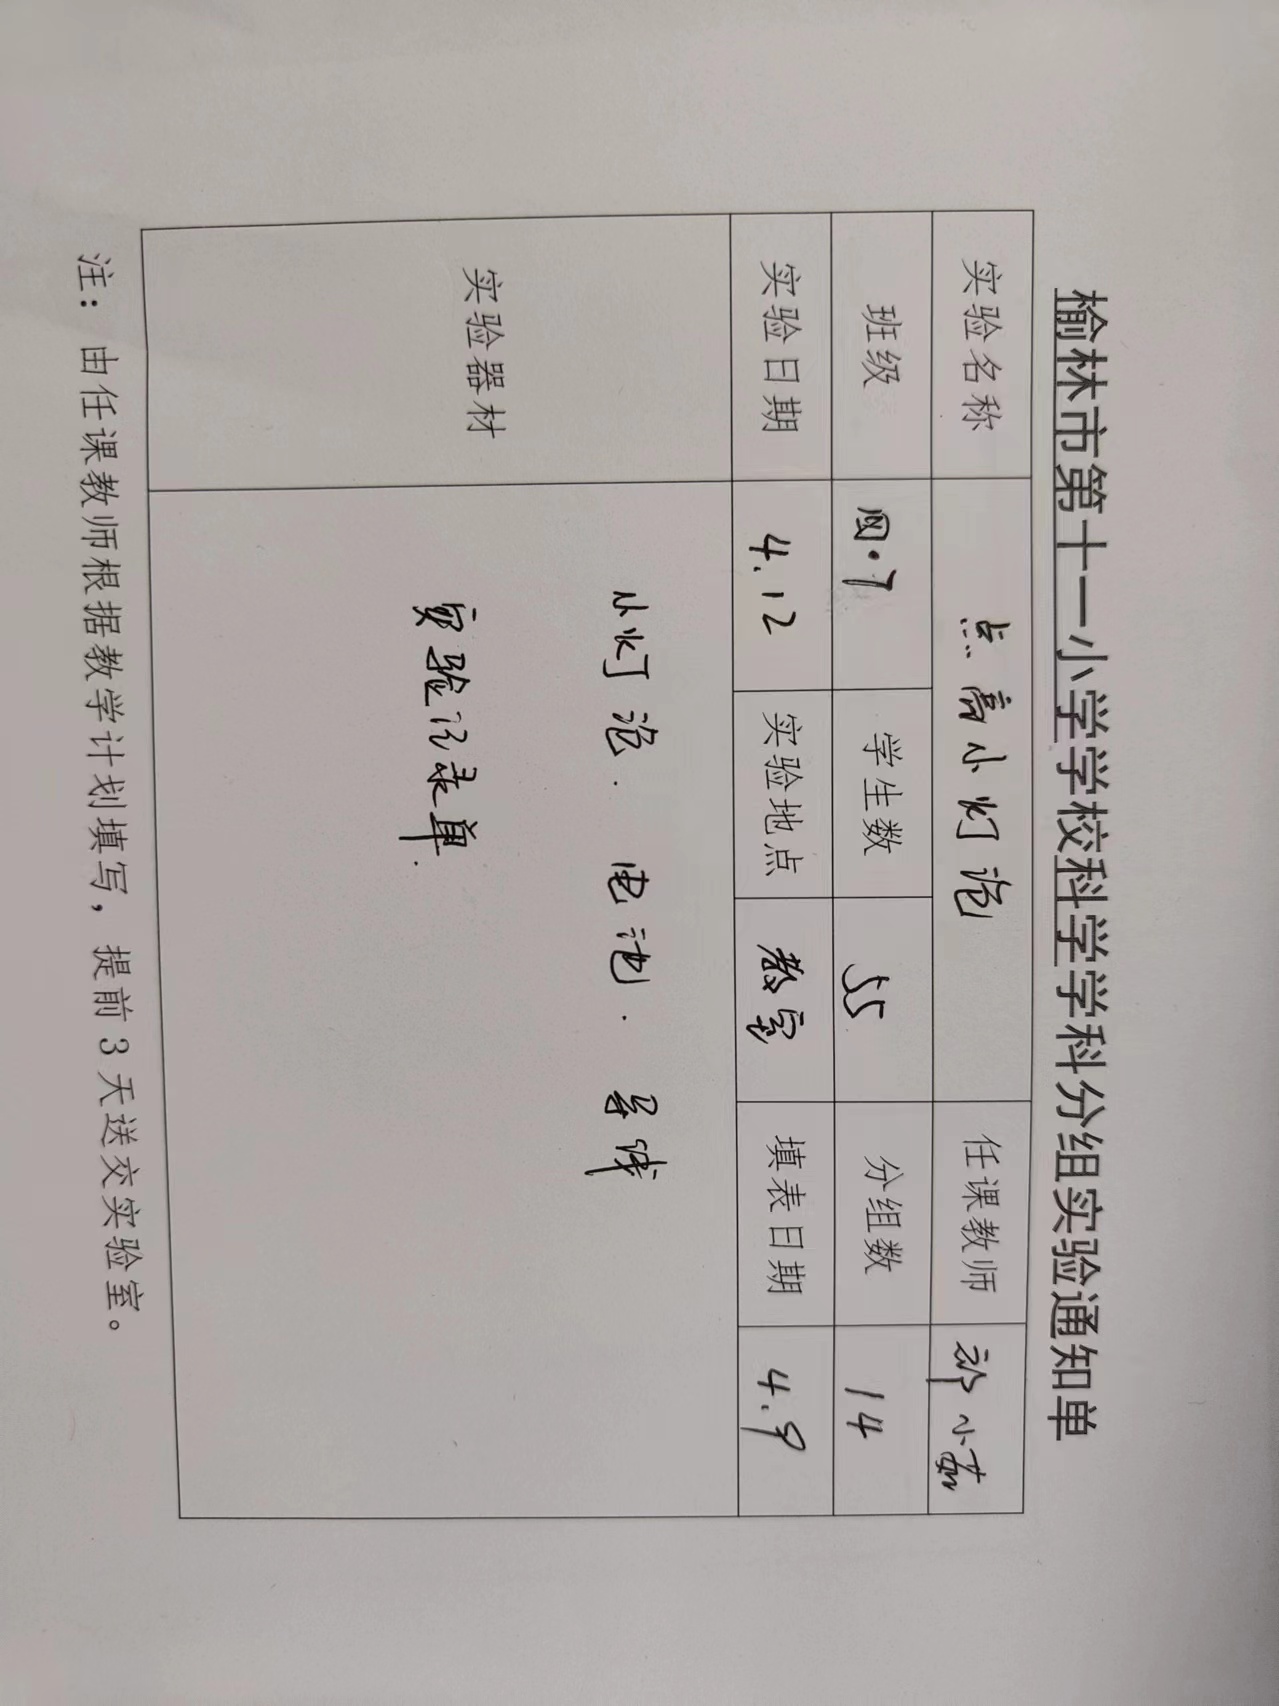 榆林市第十一小学学校科学学科分组实验通知单
实验名称 点亮小灯泡 任课教师 祁小茹
班级 四.7 学生数 55 分组数 14
实验日期 4.12 实验地点 教室 填表日期 4.9
实验器材
小灯泡. 电池. 导线
实验记录单.
注：由任课教师根据教学计划填写，提前3天送交实验室。